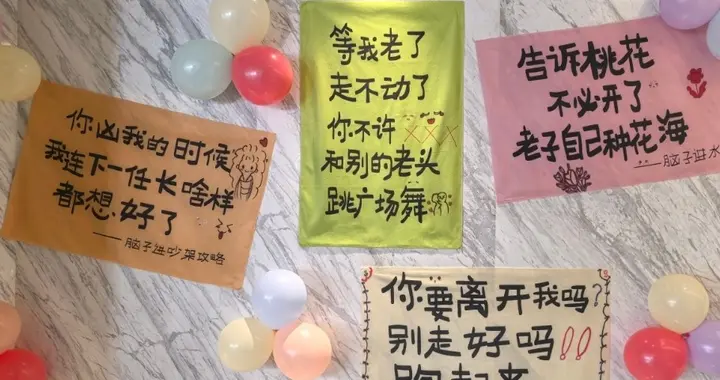 你凶我的时候
我连下一任长啥样
都想好了
——脑子进吵架攻略
等我老了
走不动了
你不许×××
和别的老头
跳广场舞
告诉桃花
不必开了
老子自己种花海
——脑子进水
你要离开我吗?
别走好吗!!
跑起来